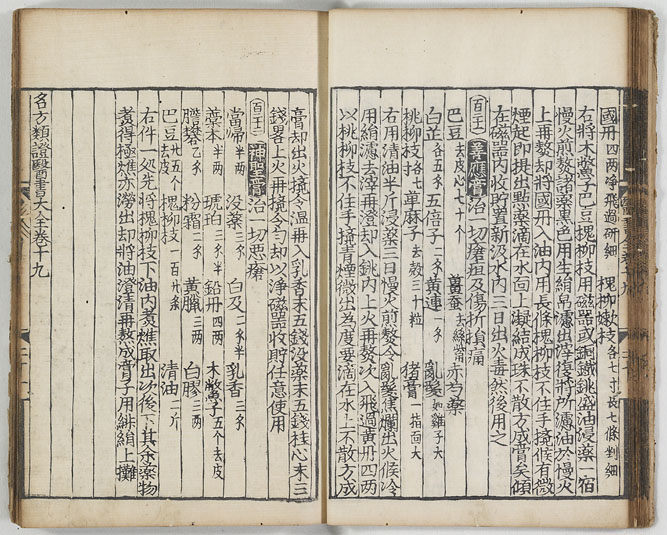 國丹四兩净飛過研細 槐柳嫩枝各七寸長七條剉細
右將木鱉子巴豆槐柳枝用磁器或銅鐵銚盛油浸藥一宿
慢火煎熬諸藥黑色用生絹帛濾出滓後將所濾油於慢火
上再熬却將國丹入油內用長條槐柳枝不住手撓候有微
煙起即提出㸃藥滴在水面上凝結成珠不散方成膏矣傾
在磁器內收貯置新汲水內三日出火毒然後用之
百三十一 善應膏 治一切瘡疽及傷折損痛
巴豆去皮心七十个 薑蚕去絲嘴 赤芍藥
白芷各五𨦟 五倍子二𨦟 黄連一𨦟 亂髮如雞子大
桃柳枝各七 萆麻子去殼三十粒 猪膏一指面大
右用清油半斤浸藥三日慢火煎熬令亂髮焦爛出火候冷
用絹濾去滓再澄却入銚內上火再熬次入飛過黄丹四兩
以桃柳枝不住手撓青煙微出為度要滴在水上不散方成
膏却出火撓令温再入乳香末五錢没藥末五錢桂心末三
錢畧上火再撓令勻却以净磁器收貯任意使用
百三十二 神聖膏 治一切惡瘡
當歸半兩 没藥三𨦟 白及二𨦟半 乳香三𨦟
藁本半兩 琥珀二𨦟半 鉛丹四兩 木鱉子五个去皮
膽礬乙𨦟 粉霜二𨦟 黄臘三兩 白膠三兩
巴豆廿五个去皮 槐柳枝一百廿條 清油一斤
右件一處先將槐柳枝下油內煮樵取出次後下其余藥物
煮得極樵亦澇出却將油澄清再熬成膏子用緋絹上攤
名方類證醫書大全卷十九